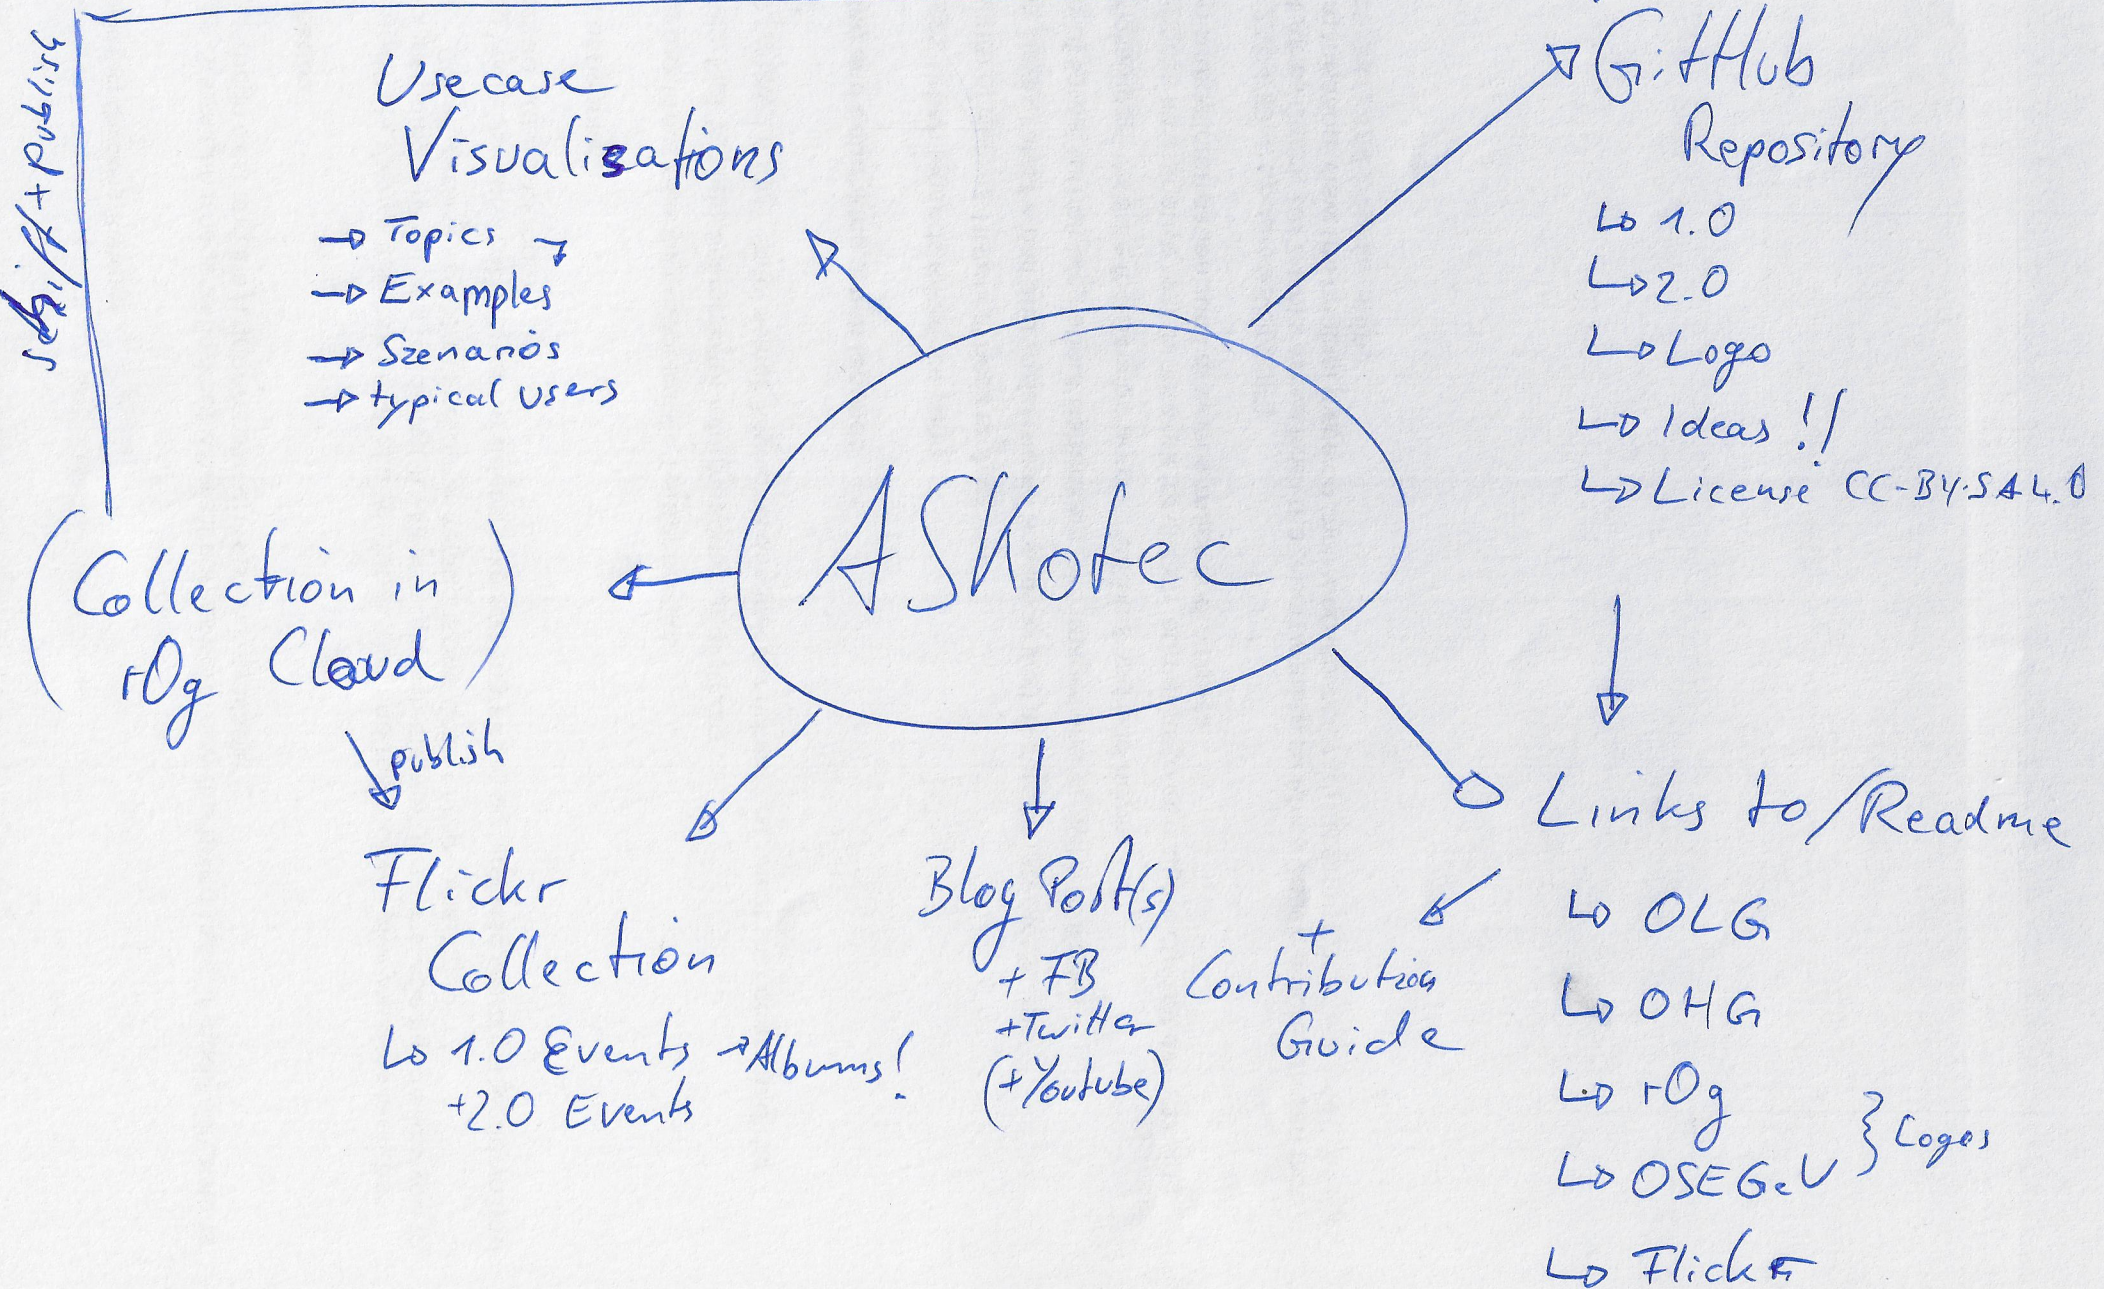 Usecase
Visualisations
→ Topics →
→ Examples
→ Szenarios
→ typical users
GitHub
Repository
↳ 1.0
↳ 2.0
↳ Logo
↳ Ideas !!
↳ License CC-BY-SA 4.0
+ publish
ASKotec
(Collection in
rOg Cloud)
publish
Flickr
Collection
↳ 1.0 Events → Albums!
+2.0 Events
Blog Post(s)
+ FB
+Twitter
(+Youtube)
+
Contribution
Guide
Links to/Readme
↳ OLG
↳ OHG
↳ rOg
↳ OSEGeV
} Logos
↳ Flickr